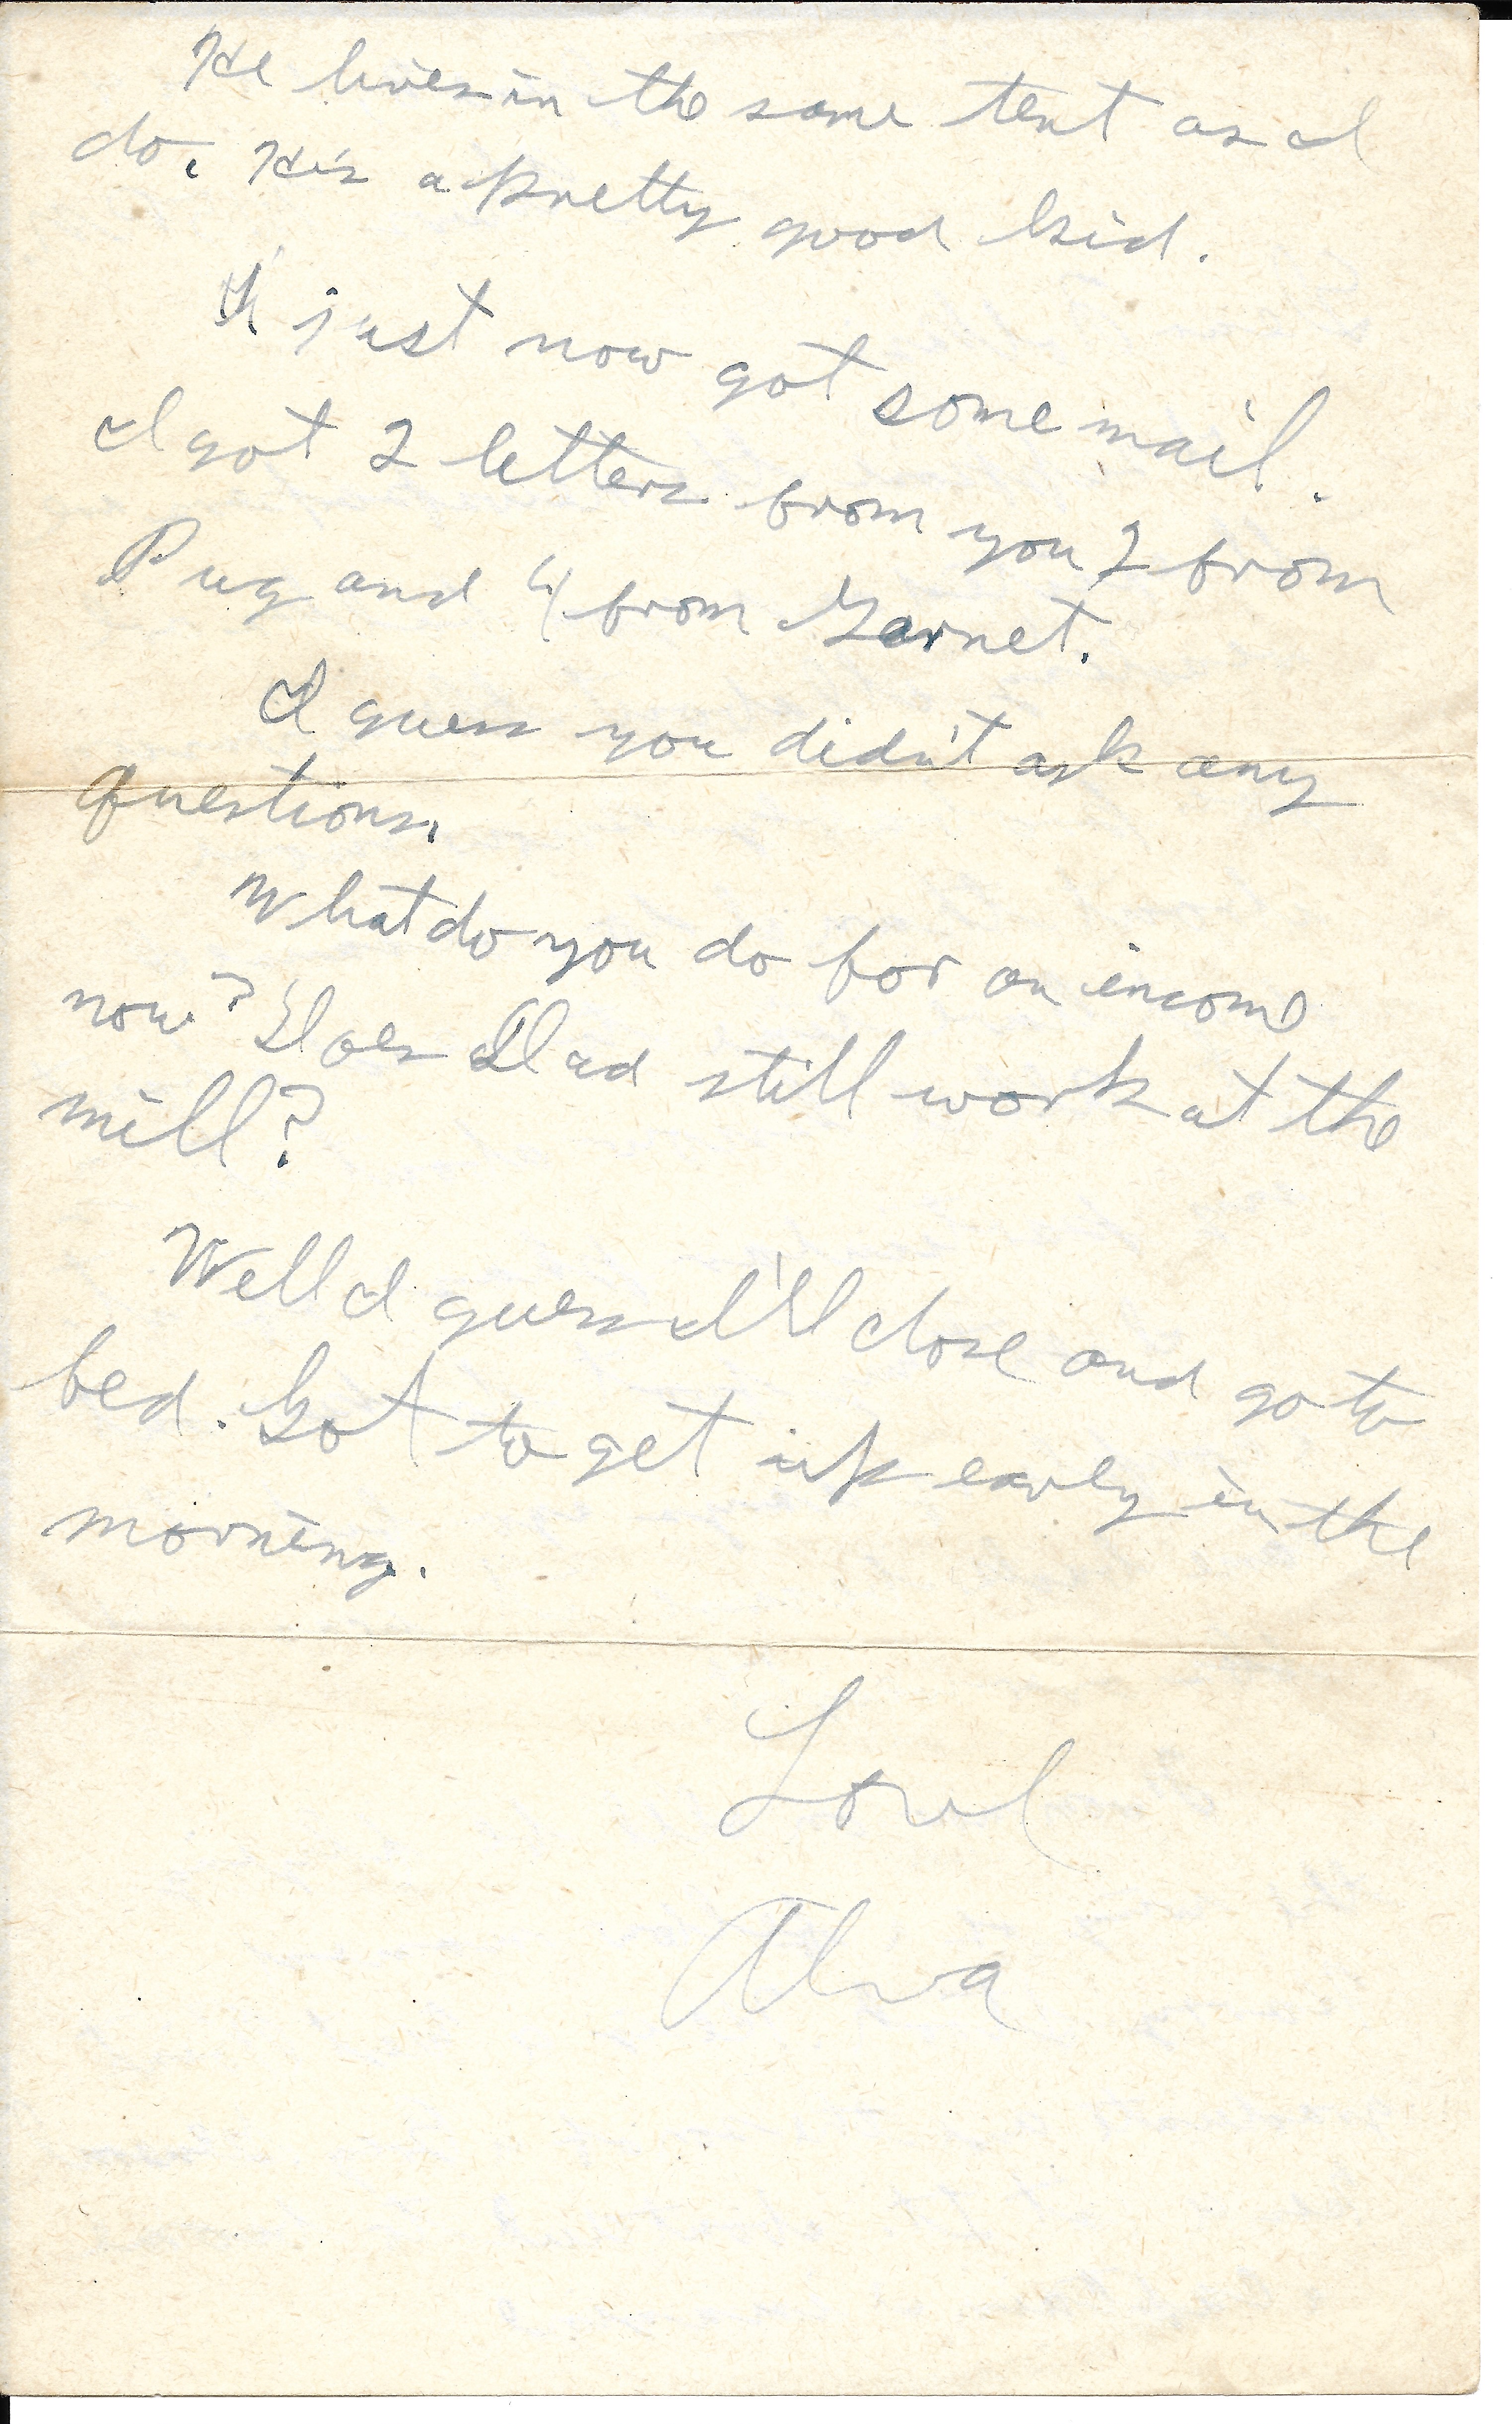 He lives in the same tent as I
do. He's a pretty good kid.
I just now got some mail.
I got 2 letters from you 2 from
Pug and 4 from Garnet.
I guess you didn't ask any
questions.
What do you do for an income
now? Does Dad still work at the
mill?
Well I guess I'll close and go to
bed. Got to get up early in the
morning.
Love
Alva